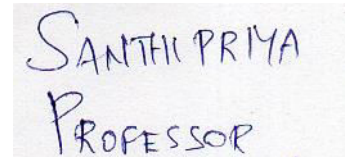 SANTHI PRIYA
PROFESSOR